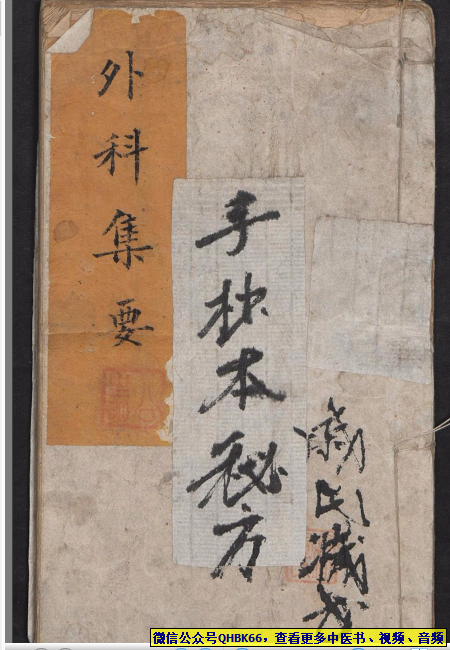 外科集要
手抄本秘方
氏藏书
微信公众号QHBK66，查看更多中医书、视频、音频